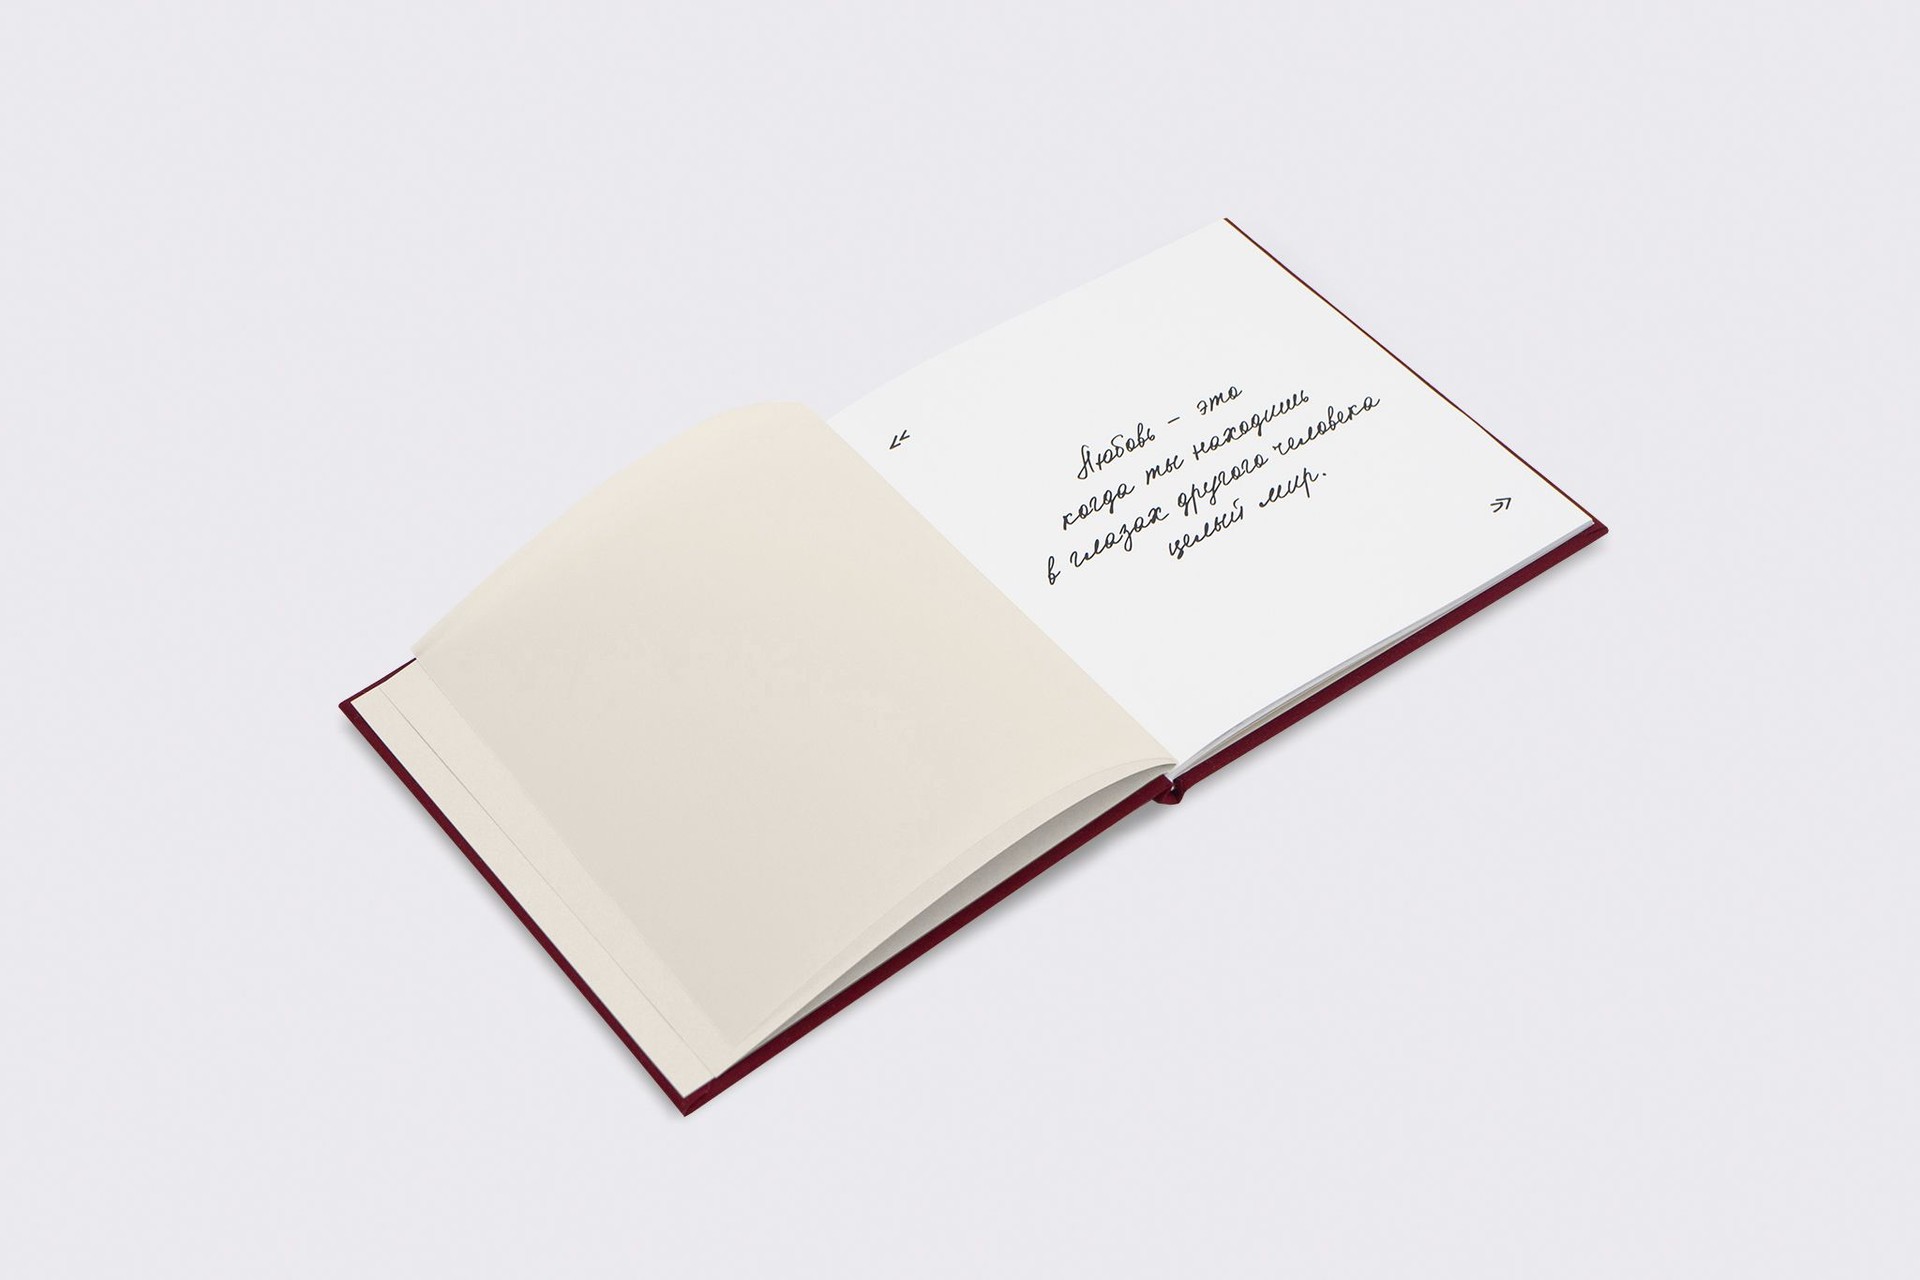 «
Любовь – это
когда ты находишь
в глазах другого человека
целый мир.
»